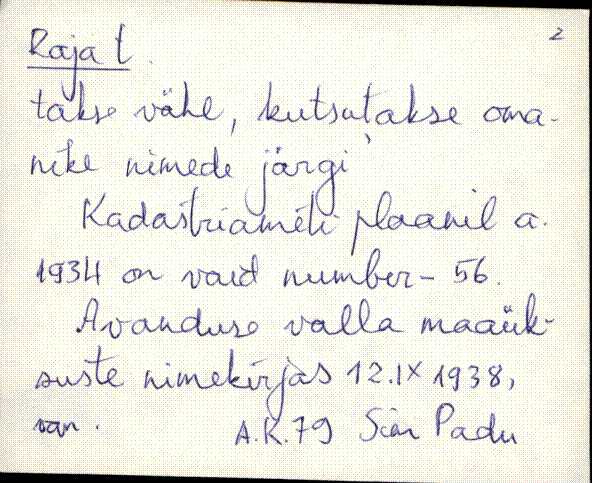 2
Raja t.
takse vähe, kutsutakse oma-
nike nimede järgi
Kadastriameti plaanil a.
1934 on vaid number - 56.
Avanduse valla maaük-
suste nimekirjas 12.IX 1938,
san. A.K.79 Siiri Padu